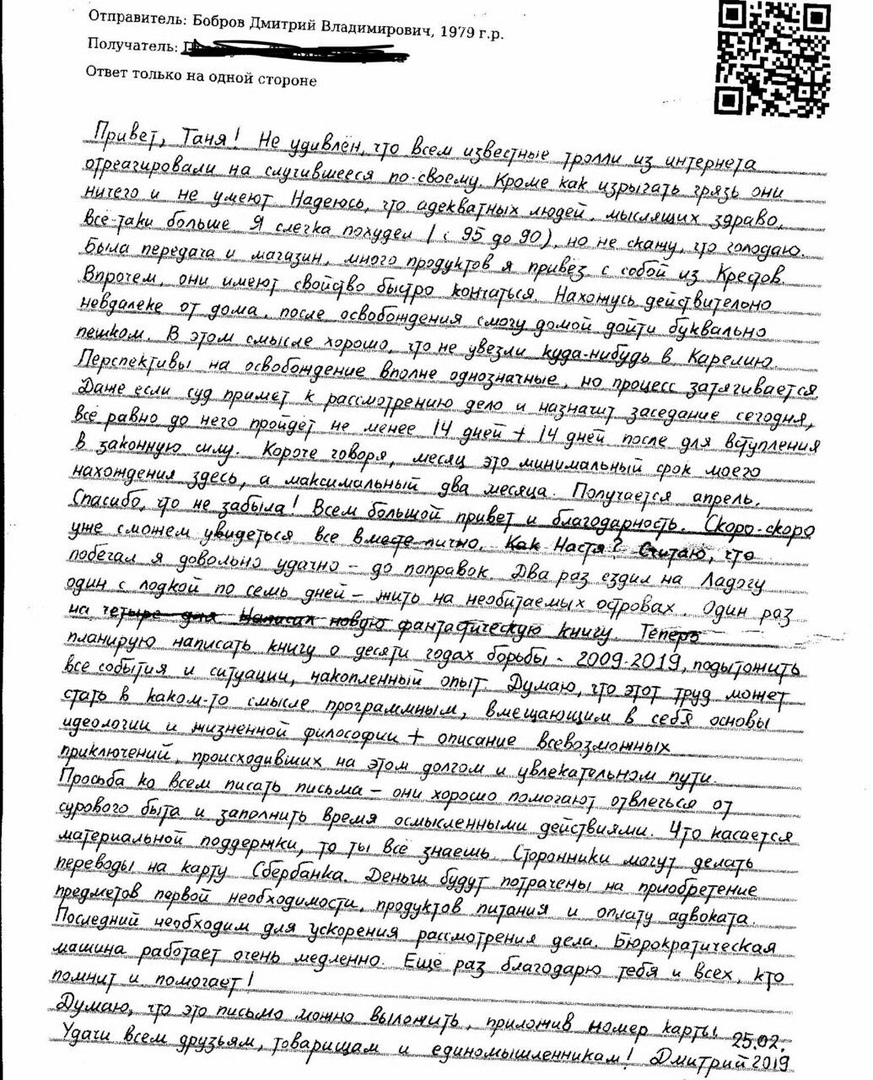 Отправитель: Бобров Дмитрий Владимирович, 1979 г.р.
Получатель:
Ответ только на одной стороне
Привет, Таня! Не удивлён, что всем известные тролли из интернета
отреагировали на случившееся по-своему. Кроме как изрыгать грязь они
ничего и не умеют. Надеюсь, что адекватных людей, мыслящих здраво,
всё-таки больше. Я слегка похудел (с 95 до 90), но не скажу, что голодаю.
Была передача и магазин, много продуктов я привёз с собой из Крестов.
Впрочем, они имеют свойство быстро кончаться. Нахожусь действительно
невдалеке от дома, после освобождения смогу домой дойти буквально
пешком. В этом смысле хорошо, что не увезли куда-нибудь в Карелию.
Перспективы на освобождение вполне однозначные, но процесс затягивается
Даже если суд примет к рассмотрению дело и назначит заседание сегодня,
всё равно до него пройдёт не менее 14 дней + 14 дней после для вступления
в законную силу. Короче говоря, месяц это минимальный срок моего
нахождения здесь, а максимальный два месяца. Получается апрель.
Спасибо, что не забыла! Всем большой привет и благодарность. Скоро-скоро
уже сможем увидеться все вместе лично. Как Настя? Считаю, что
побегал я довольно удачно – до поправок. Два раз ездил на Ладогу
один с лодкой по семь дней – жить на необитаемых островах. Один раз
на четыре дня Написал новую фантастическую книгу. Теперь
планирую написать книгу о десяти годах борьбы - 2009-2019, подытожить
все события и ситуации, накопленный опыт. Думаю, что этот труд может
стать в каком-то смысле программным, вмещающим в себя основы
идеологии и жизненной философии + описание всевозможных
приключений, происходивших на этом долгом и увлекательном пути.
Просьба ко всем писать письма – они хорошо помогают отвлечься от
сурового быта и заполнить время осмысленными действиями. Что касается
материальной поддержки, то ты всё знаешь. Сторонники могут делать
переводы на карту Сбербанка. Деньги будут потрачены на приобретение
предметов первой необходимости, продуктов питания и оплату адвоката.
Последний необходим для ускорения рассмотрения дела. Бюрократическая
машина работает очень медленно. Ещё раз благодарю тебя и всех, кто
помнит и помогает!
Думаю, что это письмо можно выложить, приложив номер карты. 25.02.
Удачи всем друзьям, товарищам и единомышленникам! Дмитрий 2019